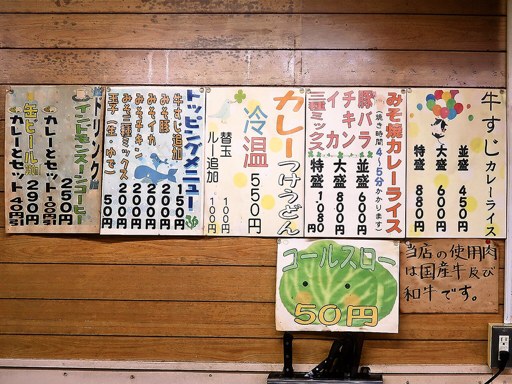 牛すじカレーライス
並盛 450円
大盛 600円
特盛 880円
みそ焼カレーライス
(焼き時間4～5分かかります)
豚バラ
チキン
イカ
三種ミックス
並盛 600円
大盛 800円
特盛 1080円
カレーつけうどん
冷温 550円
替玉 100円
ルー追加 100円
トッピングメニュー
牛すじ追加 150円
みそ豚 200円
みそチキン 200円
みそイカ 200円
みそ三種ミックス 200円
玉子(生・ゆで) 50円
ドリンク
インドネシアコーヒー
250円
カレーとセット+100円
缶ビール 290円
カレーとセット 400円引
コールスロー
50円
当店の使用肉
は国産牛及び
和牛です。